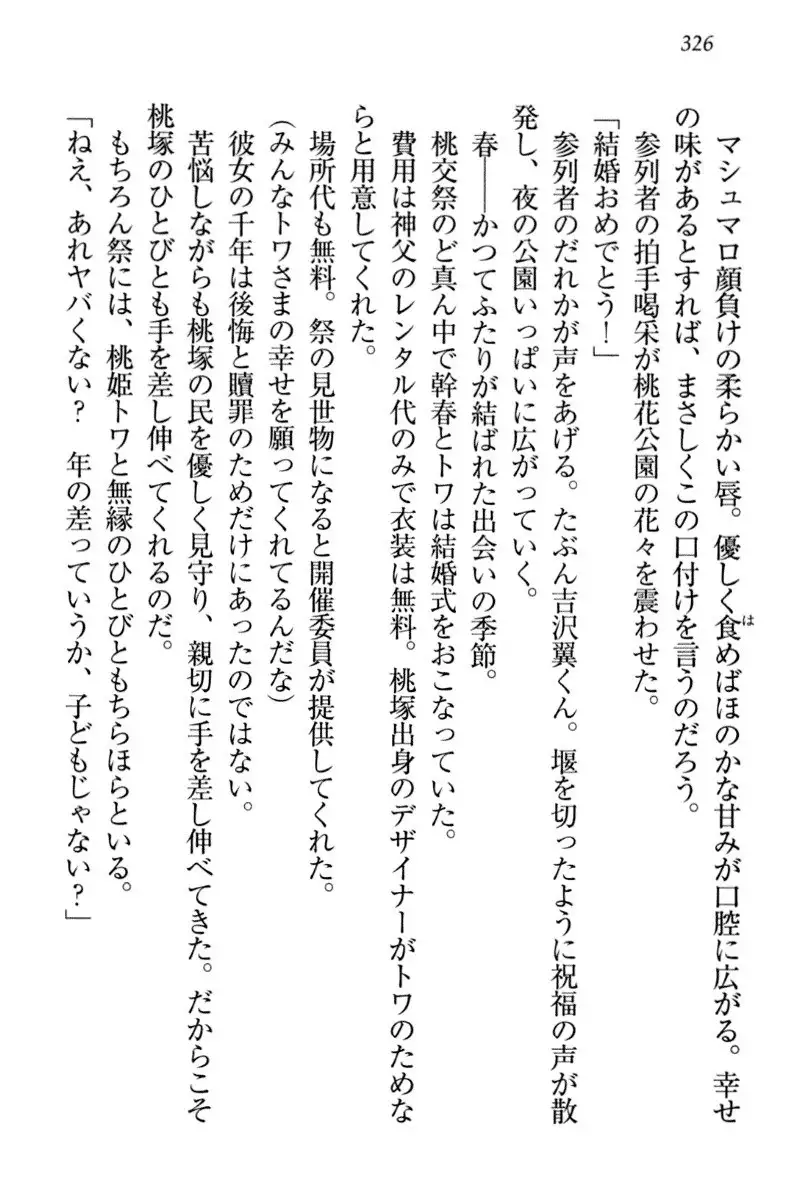 326
マシュマロ顔負けの柔らかい唇。優しく食めばほのかな甘みが口腔に広がる。幸せ
は
の味があるとすれば、まさしくこの口付けを言うのだろう。
参列者の拍手喝采が桃花公園の花々を震わせた。
「結婚おめでとう！」
参列者のだれかが声をあげる。たぶん吉沢翼くん。堰を切ったように祝福の声が散
発し、夜の公園いっぱいに広がっていく。
春――かつてふたりが結ばれた出会いの季節。
桃交祭のど真ん中で幹春とトワは結婚式をおこなっていた。
費用は神父のレンタル代のみで衣装は無料。桃塚出身のデザイナーがトワのためな
らと用意してくれた。
場所代も無料。祭の見世物になると開催委員が提供してくれた。
（みんなトワさまの幸せを願ってくれてるんだな）
彼女の千年は後悔と贖罪のためだけにあったのではない。
苦悩しながらも桃塚の民を優しく見守り、親切に手を差し伸べてきた。だからこそ
桃塚のひとびとも手を差し伸べてくれるのだ。
もちろん祭には、桃姫トワと無縁のひとびともちらほらといる。
「ねえ、あれヤバくない？　年の差っていうか、子どもじゃない？」